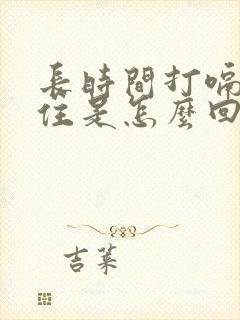 長時間打嗝
住是怎麼回
吉萊